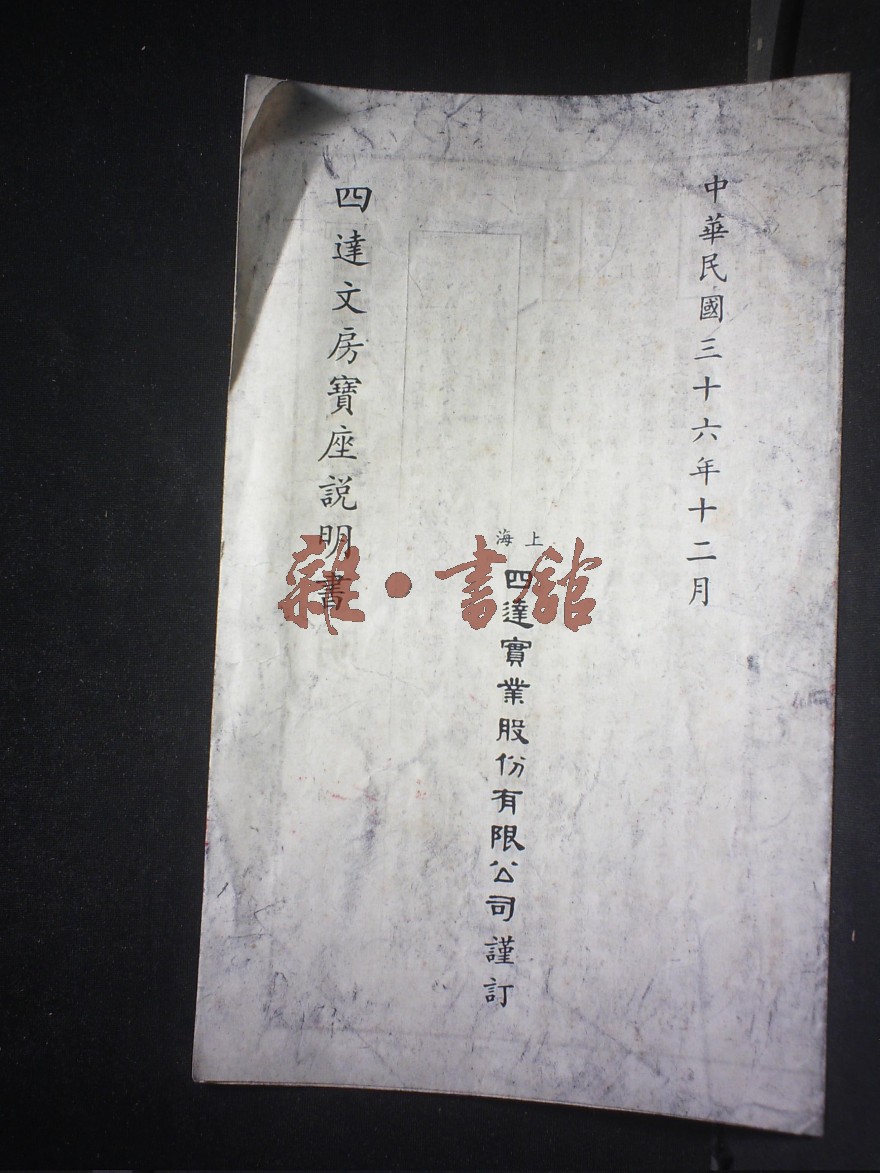 中華民國三十六年十二月
上海
四達實業股份有限公司謹訂
四達文房寶座説明書
雜·書館